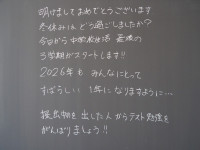 明けましておめでとうございます
冬休みは、どう過ごしましたか?
今日から中学校生活 最後の
3学期がスタートします!!
2026年も みんなにとって
すばらしい 1年になりますように…
提出物を出した人からテスト勉強を
がんばりましょう!!